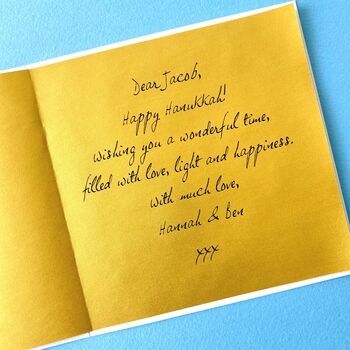 Dear Jacob,
Happy Hanukkah!
Wishing you a wonderful time,
filled with love, light and happiness.
With much love,
Hannah & Ben
xxx